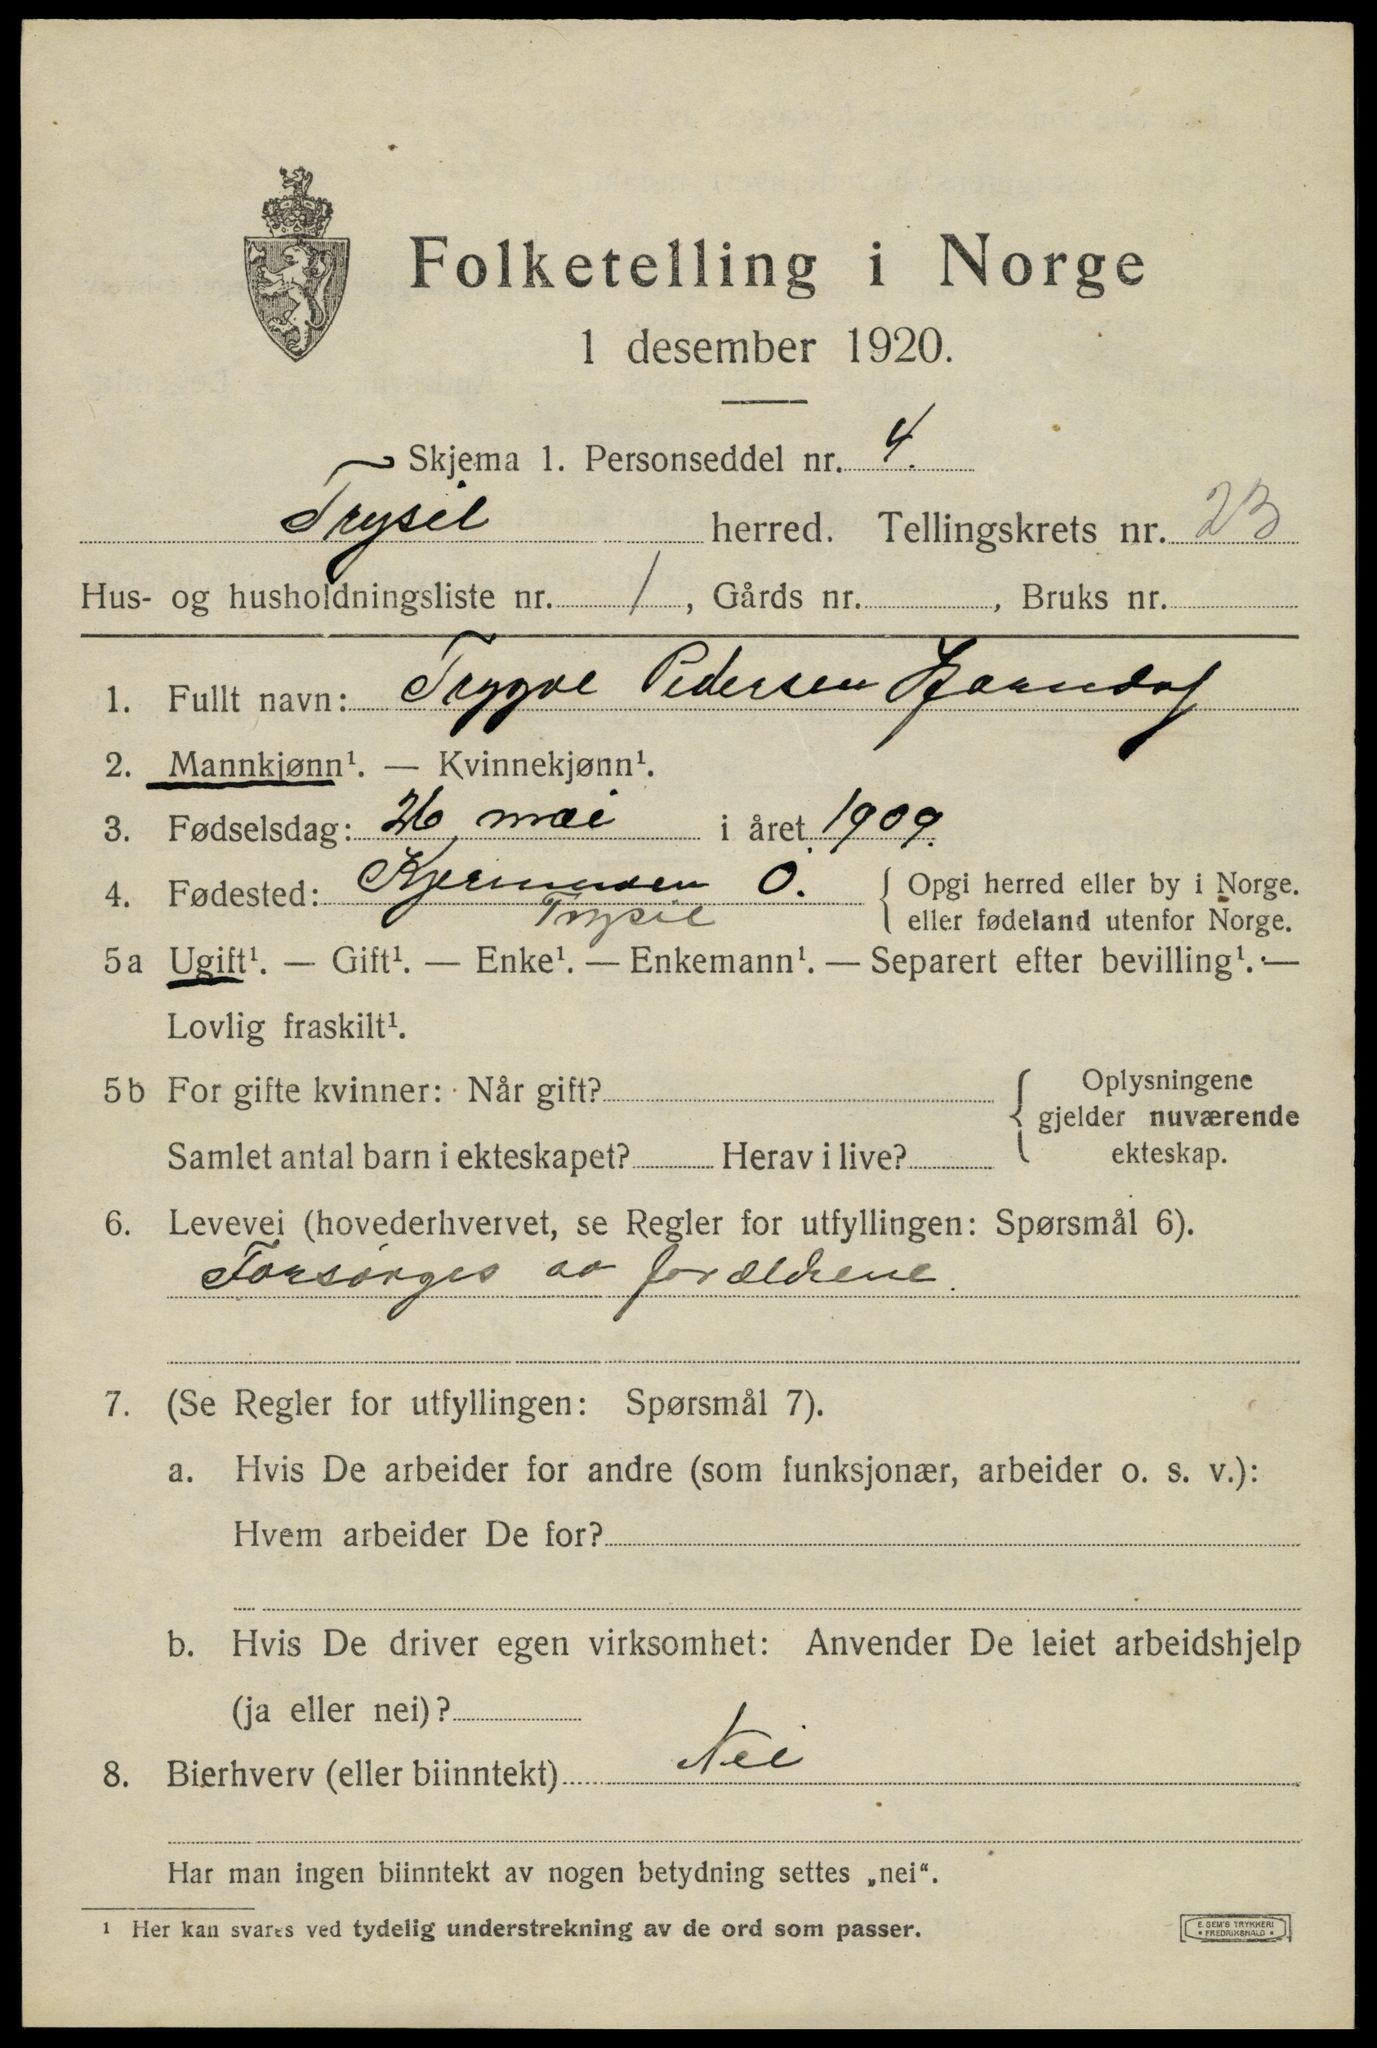 Folketelling i Norge
1 desember 1920.
Skjema 1. Personseddel nr. 4.
Trysil herred. Tellingskrets nr. 23
Hus- og husholdningsliste nr. 1, Gårds nr. , Bruks nr.
1. Fullt navn: Trygve Pedersen
2. Mannkjønn¹. — Kvinnekjønn¹.
3. Fødselsdag: 26 mai i året 1909.
4. Fødested: Ö. { Opgi herred eller by i Norge.
Trysil eller fødeland utenfor Norge.
5a Ugift¹. — Gift¹. — Enke¹. — Enkemann¹. — Separert efter bevilling¹. —
Lovlig fraskilt¹.
5b For gifte kvinner: Når gift? { Oplysningene
gjelder nuværende
Samlet antal barn i ekteskapet? Herav i live? ekteskap.
6. Levevei (hovederhvervet, se Regler for utfyllingen: Spørsmål 6).
Forsørges av forældrene.
7. (Se Regler for utfyllingen: Spørsmål 7).
a. Hvis De arbeider for andre (som funksjonær, arbeider o. s. v.):
Hvem arbeider De for?
b. Hvis De driver egen virksomhet: Anvender De leiet arbeidshjelp
(ja eller nei)?
8. Bierhverv (eller biinntekt) Nei
Har man ingen biinntekt av nogen betydning settes „nei“.
¹ Her kan svares ved tydelig understrekning av de ord som passer.
E. SEM'S TRYKKERI
* FREDRIKSHALD *